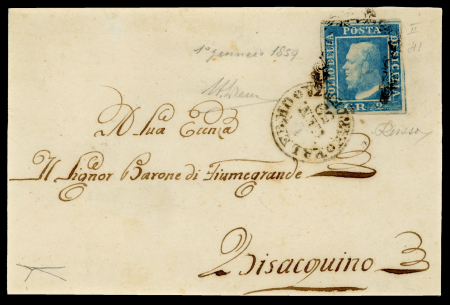 BOLLO DELLA POSTA DI SICILIA
GR. 2
II
41
1° gennaio 1859
A Sua Ecc.nza
Il Signor Barone di Fiumegrande
Bisacquino